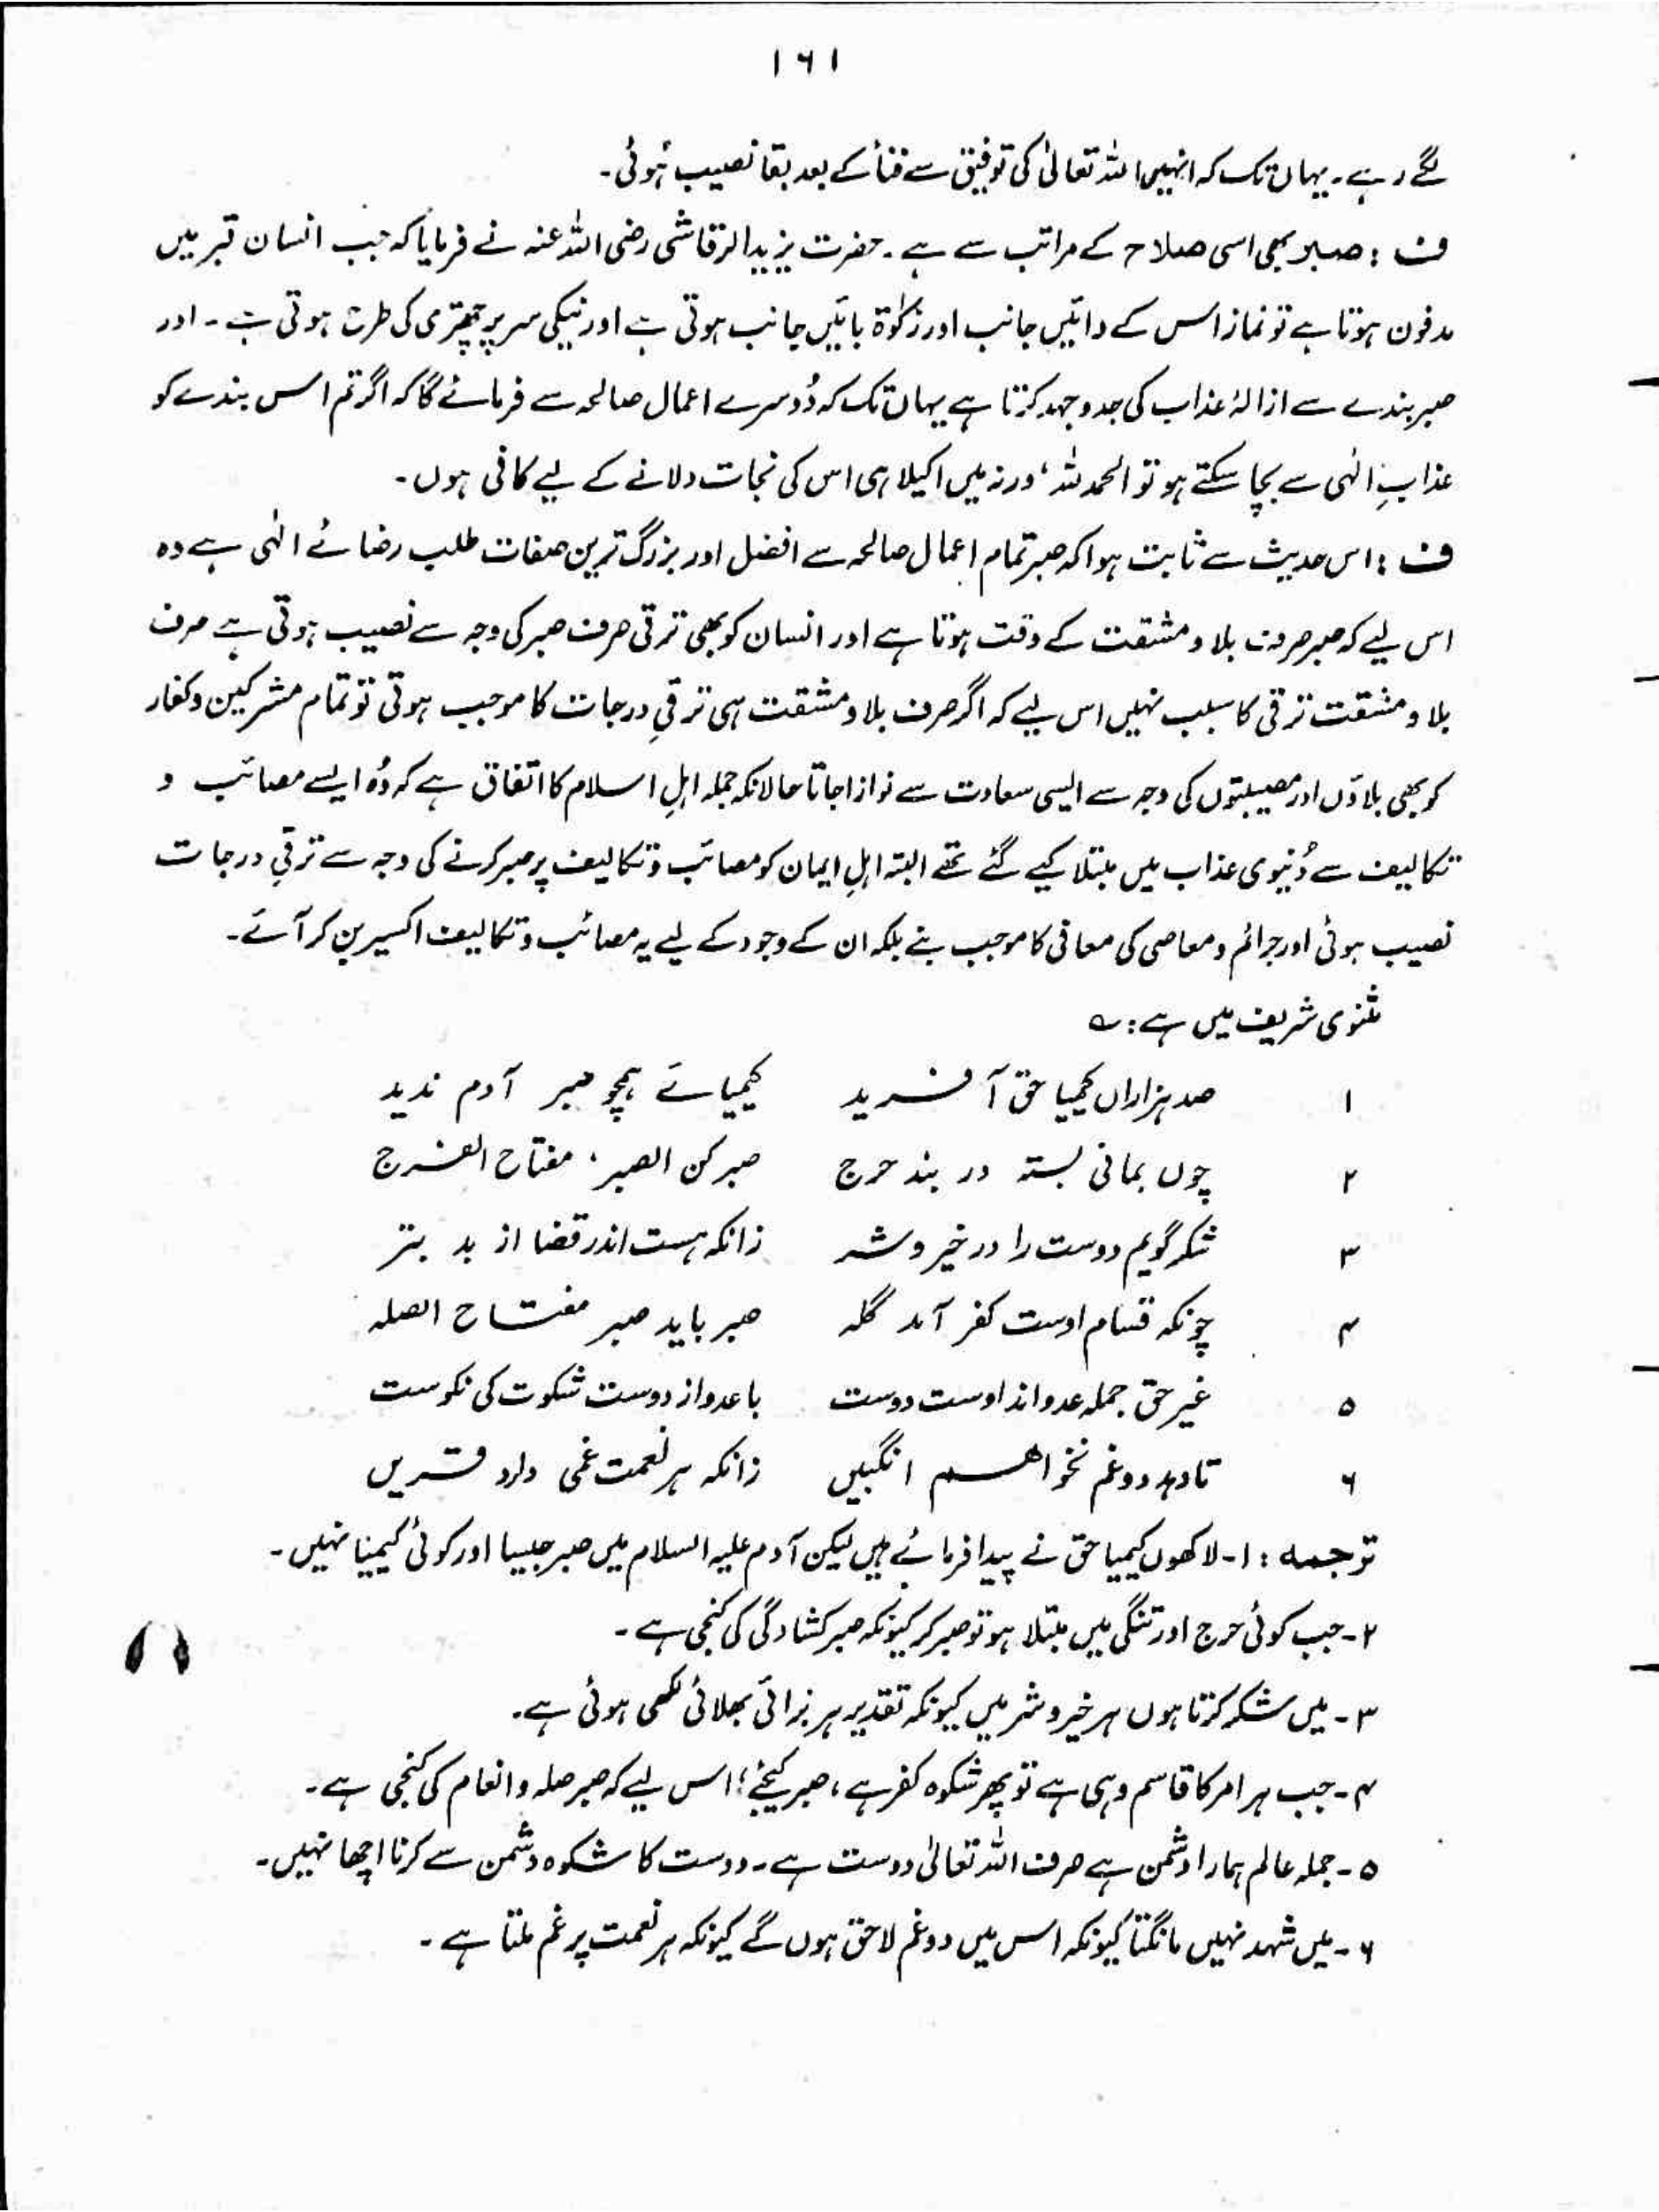 ۱۶۱
لگے رہے۔ یہاں تک کہ انہیں اللہ تعالیٰ کی توفیق سے فنأ کے بعد بقا نصیب ہُوئی۔
ف : صبر بھی اسی صلاح کے مراتب سے ہے۔ حضرت یزید الرقاشی رضی اللہ عنہ نے فرمایا کہ جب انسان قبر میں
مدفون ہوتا ہے تو نماز اس کے دائیں جانب اور زکوٰۃ بائیں جانب ہوتی ہے اور نیکی سر پر چھتری کی طرح ہوتی ہے۔ اور
صبر بندے سے ازالۂ عذاب کی جدوجہد کرتا ہے یہاں تک کہ دُوسرے اعمال صالحہ سے فرمائے گا کہ اگر تم اس بندے کو
عذابِ الٰہی سے بچا سکتے ہو تو الحمد للہ، ورنہ میں اکیلا ہی اس کی نجات دلانے کے لیے کافی ہوں۔
ف : اس حدیث سے ثابت ہوا کہ صبر تمام اعمال صالحہ سے افضل اور بزرگ ترین صفات طلب رضائے الٰہی ہے وہ
اس لیے کہ صبر صرف بلا و مشقت کے وقت ہوتا ہے اور انسان کو بھی ترقی صرف صبر کی وجہ سے نصیب ہوتی ہے صرف
بلا و مشقت ترقی کا سبب نہیں اس لیے کہ اگر صرف بلا و مشقت ہی ترقیِ درجات کا موجب ہوتی تو تمام مشرکین و کفار
کو بھی بلاؤں اور مصیبتوں کی وجہ سے ایسی سعادت سے نوازا جاتا حالانکہ جملہ اہلِ اسلام کا اتفاق ہے کہ وُہ ایسے مصائب و
تکالیف سے دُنیوی عذاب میں مبتلا کیے گئے تھے البتہ اہلِ ایمان کو مصائب و تکالیف پر صبر کرنے کی وجہ سے ترقیِ درجات
نصیب ہوئی اور جرائم و معاصی کی معافی کا موجب بنے بلکہ ان کے وجود کے لیے یہ مصائب و تکالیف اکسیر بن کر آئے۔
مثنوی شریف میں ہے : ؎
۱ صد ہزاراں کیمیا حق آفرید کیمیائے ہمچو صبر آدم ندید
۲ چوں بمانی بستہ در بند حرج صبر کن الصبر، مفتاح الفرج
۳ شکر گویم دوست را در خیر و شر زانکہ ہست اندر قضا از بد بتر
۴ چونکہ قسام اوست کفر آمد گلہ صبر باید صبر مفتاح الصلہ
۵ غیر حق جملہ عدو اند اوست دوست با عدو از دوست شکوت کی نکوست
۶ تا دہد دوغم نخواہم انگبیں زانکہ ہر نعمت غمی دارد قریں
ترجمہ : ۱۔ لاکھوں کیمیا حق نے پیدا فرمائے ہیں لیکن آدم علیہ السلام میں صبر جیسا اور کوئی کیمیا نہیں۔
۲۔ جب کوئی حرج اور تنگی میں مبتلا ہو تو صبر کر کیونکہ صبر کشادگی کی کنجی ہے۔
۳۔ میں شکر کرتا ہوں ہر خیر و شر میں کیونکہ تقدیر ہر برائی بھلائی لکھی ہوئی ہے۔
۴۔ جب ہر امر کا قاسم وہی ہے تو پھر شکوہ کفر ہے، صبر کیجئے؛ اس لیے کہ صبر صلہ و انعام کی کنجی ہے۔
۵۔ جملہ عالم ہمارا دشمن ہے صرف اللہ تعالیٰ دوست ہے۔ دوست کا شکوہ دشمن سے کرنا اچھا نہیں۔
۶۔ میں شہد نہیں مانگتا کیونکہ اس میں دو غم لاحق ہوں گے کیونکہ ہر نعمت پر غم ملتا ہے۔